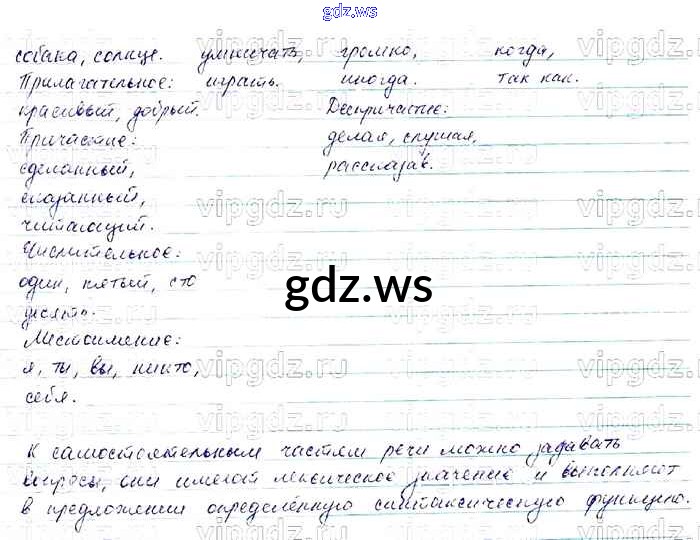 gdz.ws
собака, солнце. умничать, громко, когда,
Прилагательное: играть. иногда. так как.
красивый, добрый. Деепричастие:
Причастие: делая, слушая,
сделанный, рассказав.
сказанный,
читающий.
Числительное:
один, пятый, сто
десять.
gdz.ws
Местоимение:
я, ты, вы, никто,
себя.
К самостоятельным частям речи можно задавать
вопросы, они имеют лексическое значение и выполняют
в предложении определённую синтаксическую функцию.
vipgdz.ru